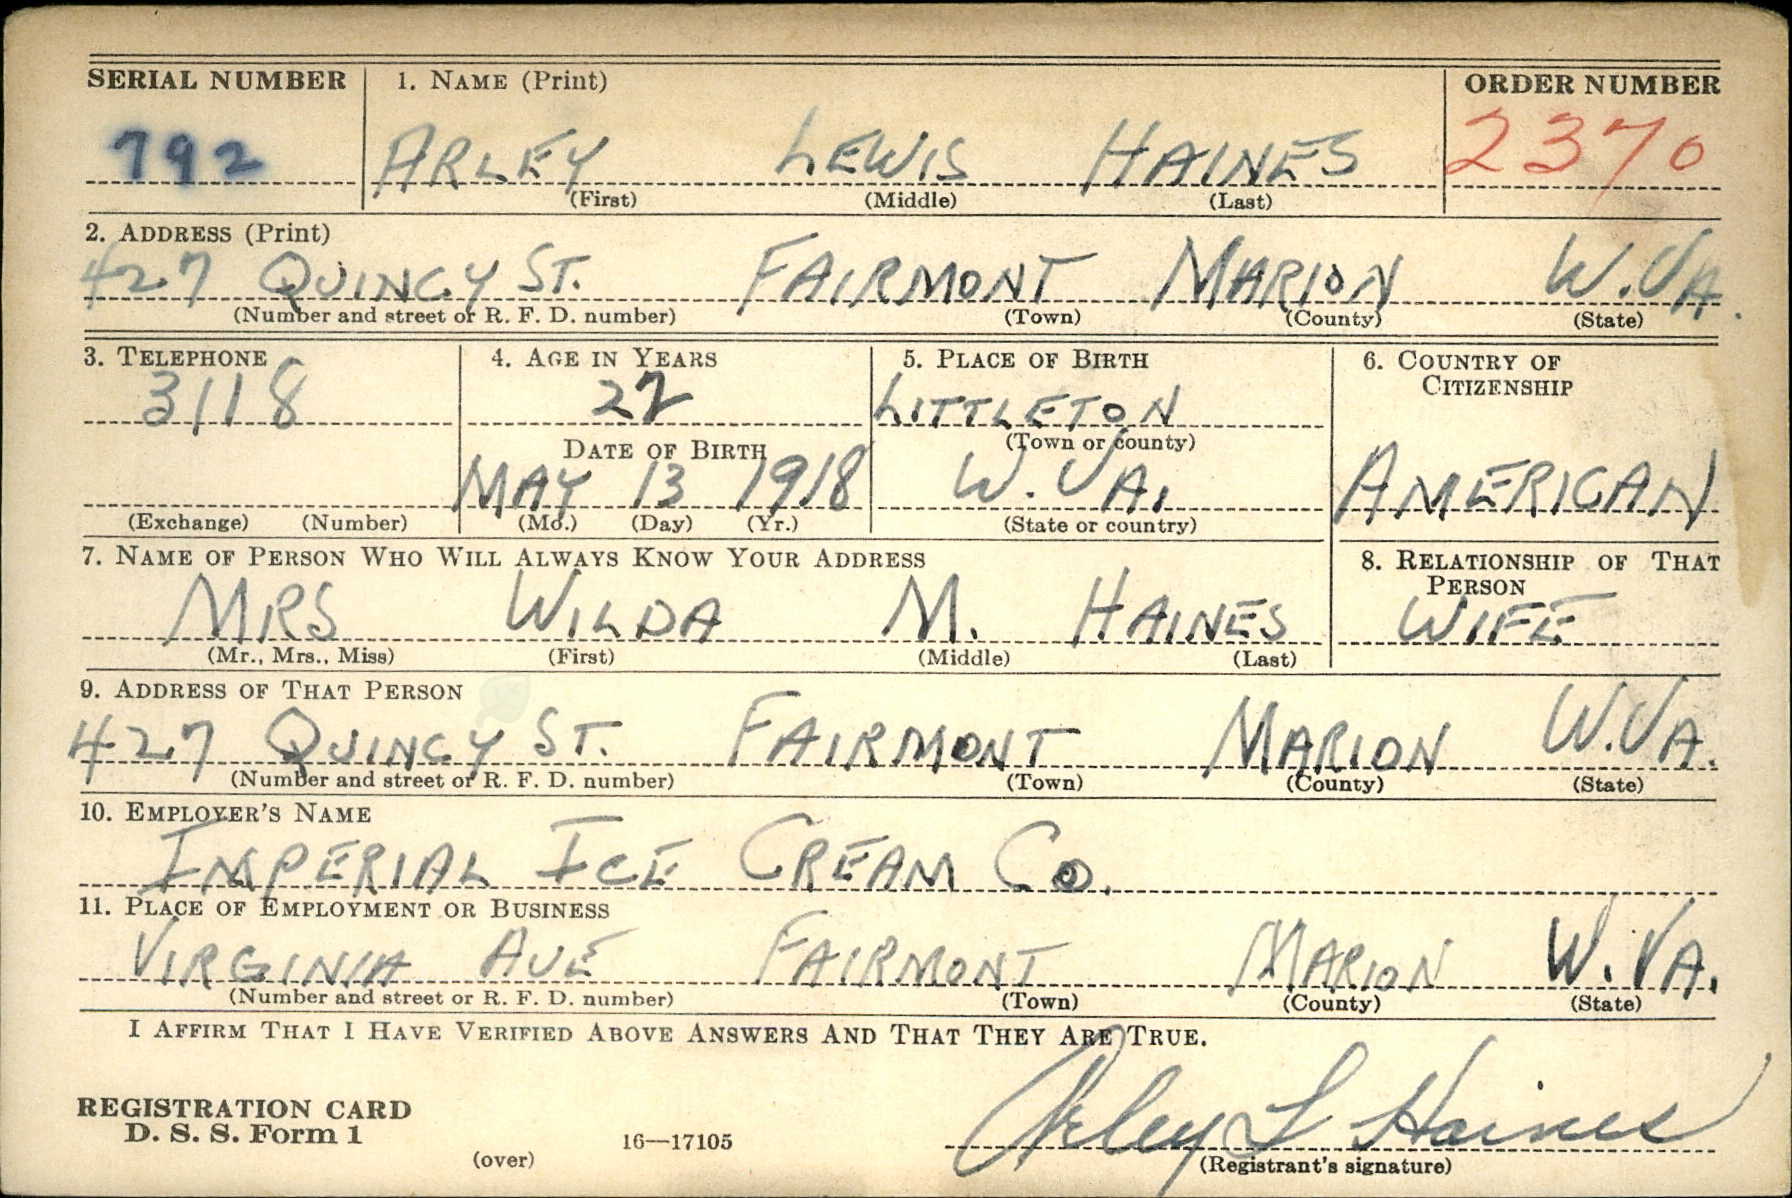 SERIAL NUMBER 1. NAME (Print) ORDER NUMBER
792 ARLEY LEWIS HAINES 2370
(First) (Middle) (Last)
2. ADDRESS (Print)
427 QUINCY ST. FAIRMONT MARION W.VA.
(Number and street or R. F. D. number) (Town) (County) (State)
3. TELEPHONE 4. AGE IN YEARS 5. PLACE OF BIRTH 6. COUNTRY OF CITIZENSHIP
3118 22 LITTLETON
(Town or county)
DATE OF BIRTH
MAY 13 1918 W. VA. AMERICAN
(Exchange) (Number) (Mo.) (Day) (Yr.) (State or country)
7. NAME OF PERSON WHO WILL ALWAYS KNOW YOUR ADDRESS 8. RELATIONSHIP OF THAT PERSON
MRS WILDA M. HAINES WIFE
(Mr., Mrs., Miss) (First) (Middle) (Last)
9. ADDRESS OF THAT PERSON
427 QUINCY ST. FAIRMONT MARION W.VA.
(Number and street or R. F. D. number) (Town) (County) (State)
10. EMPLOYER'S NAME
IMPERIAL ICE CREAM CO.
11. PLACE OF EMPLOYMENT OR BUSINESS
VIRGINIA AVE FAIRMONT MARION W. VA.
(Number and street or R. F. D. number) (Town) (County) (State)
I AFFIRM THAT I HAVE VERIFIED ABOVE ANSWERS AND THAT THEY ARE TRUE.
REGISTRATION CARD
D. S. S. Form 1
(over) 16—17105
Arley L Haines
(Registrant's signature)